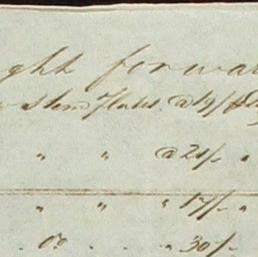 ght forwar
Stem Flates. @ 19/
" " @ 21/- "
" " " 17/- "
. Do . . " 30/-